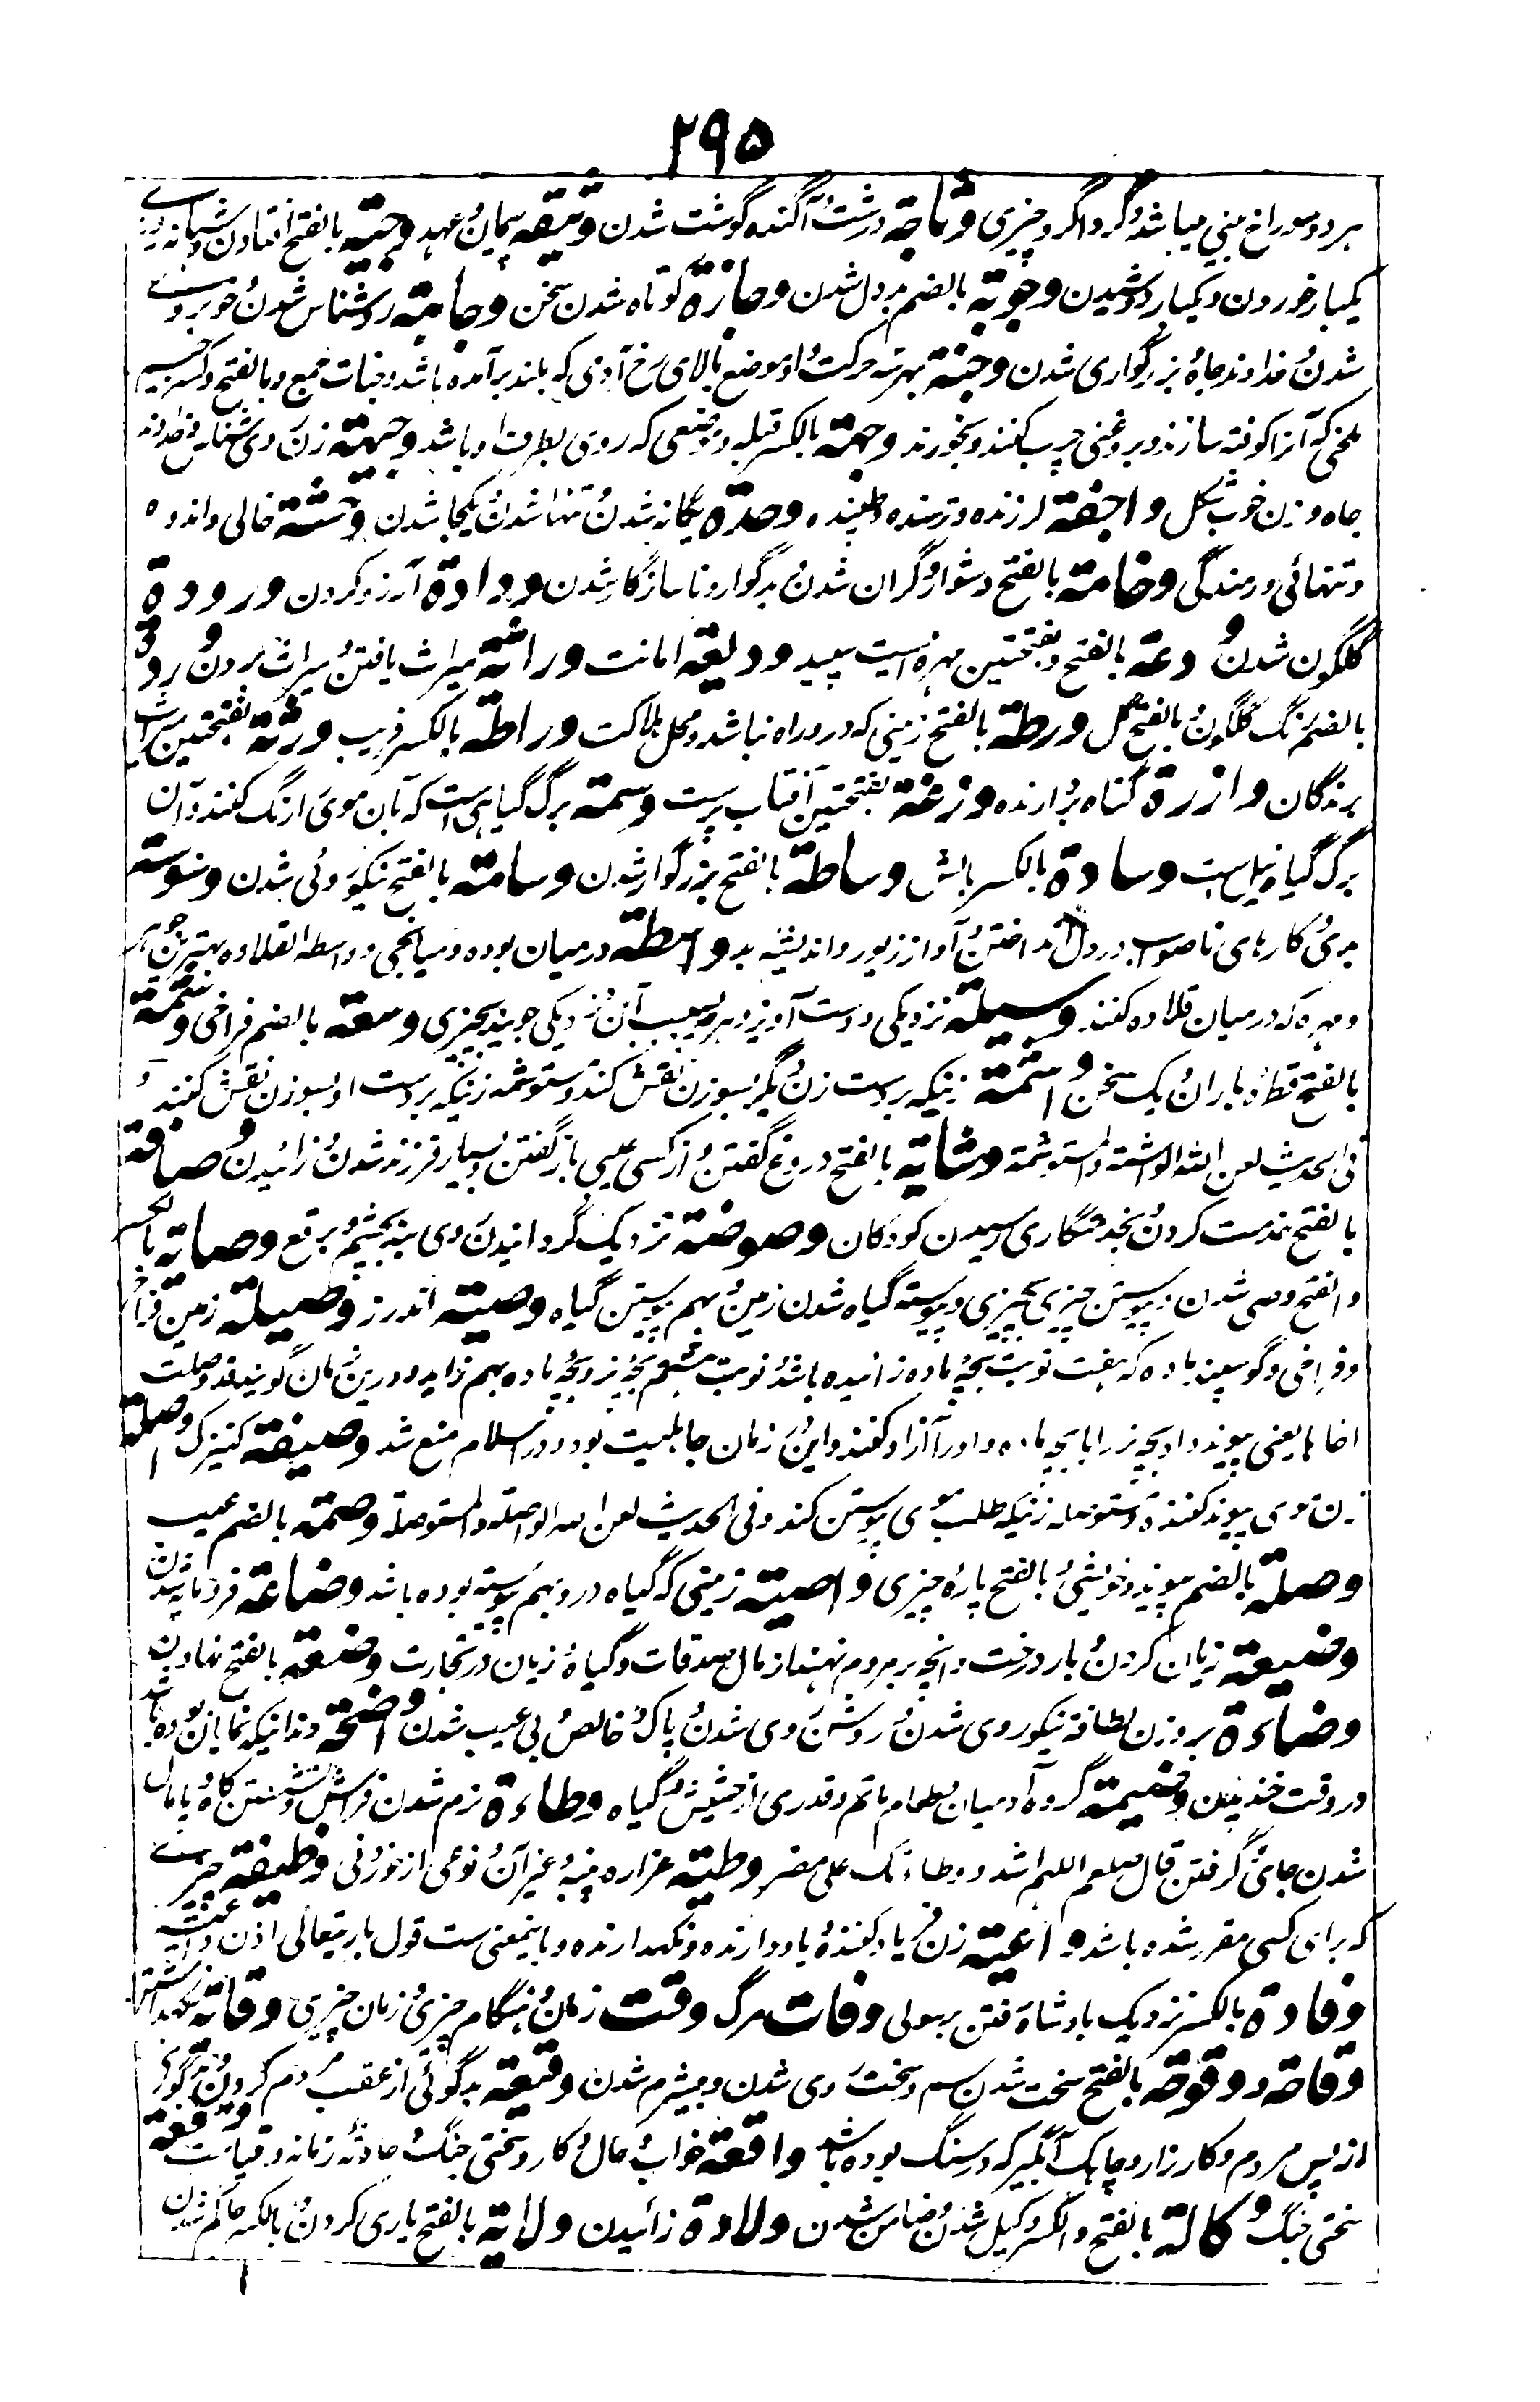 ۲۹۵
هر دو سوراخ بینی میباشد و گرداگرد چیزی وثاجة درشت و آگنده گوشت شدن وثیقه پیمان و عهد وجبة بالفتح افتادن و شبانه روزی
یکبار خوردن و یکبار دوشیدن وجوبة بالضم بددل شدن وجازة کوتاه شدن سخن وجاهة روشناس شدن و خوبروی
شدن و خداوند جاه و بزرگواری شدن وجنة بهر سه حرکت او موضع بالای رخ آدمی که بلند برآمده باشد وجنات جمع و بالفتح و کسر جیم
ملخی که آنرا کوفته سازند و بروغنی چرب کنند و بخورند وجهة بالکسر قبله و موضعی که روی بطرف او باشد وجیهة زن روی شناس و خداوند
جاه و زن خوب شکل واجفة لرزنده و ترسنده و طپنده وحدة یگانه شدن و تنها شدن و یکجا شدن وحشة خالی و اندوه
و تنهائی و رمندگی وخامة بالفتح دشوار و گران شدن و بدگوار و ناسازگار شدن ودادة آرزو کردن ورودة
گلگون شدن ودعة بالفتح و بفتحتین مهره ایست سپید ودیعة امانت وراثة میراث یافتن و میراث بردن وردة
بالضم رنگ گلگون و بالفتح گل ورطة بالفتح زمینی که درو راه نباشد و محل هلاکت وراطة بالکسر فریب ورثة بفتحتین میراث
برندگان وازرة گناه بردارنده وزغة بفتحتین آفتاب پرست وسمة برگ گیاهی است که بآن موی را رنگ کنند و آن
برگ گیاه نیل است وسادة بالکسر بالش وساطة بالفتح بزرگوار شدن وسامة بالفتح نیکو روئی شدن وسوسة
بدی و کارهای ناصواب در دل انداختن و آواز زیور و اندیشه بد واسطة درمیان بوده و میانجی و واسطه القلاده بهترین جوهر
و مهره که درمیان قلاده کنند وسیلة نزدیکی و دست آویز و هرچه بسبب آن نزدیکی جویند بچیزی وسعة بالضم فراخی وشمة
بالفتح قطره باران و یک سخن واشمة زنیکه بر دست زن دیگر بسوزن نقش کند و مستوشمه زنیکه بر دست او بسوزن نقش کنند و
فی الحدیث لعن الله الواشمة والمستوشمة وشایة بالفتح دروغ گفتن و از کسی عیبی باز گفتن و بسیار فرزند شدن و زائیدن وصافة
بالفتح خدمت کردن و بخدمتگاری رسیدن کودکان وصوصة نزدیک گردانیدن روی بند بچشم و برقع وصایة بالکسر
و الفتح وصی شدن و پیوستن چیزی بچیزی و پیوسته گیاه شدن زمین و بهم پیوستن گیاه وصیة اندرز وصیلة زمین فراخ
و فراخی و گوسپند ماده که هفت نوبت بچه ماده زائیده باشد و نوبت هشتم بچه نر و بچه ماده بهم زاید و درین زمان گویند قد وصلت
اخاها یعنی پیوند داد بچه نر را با بچه ماده و او را آزاد کنند و این در زمان جاهلیت بود و در اسلام منع شد وصیفة کنیزک واصلة
زن موی پیوند کننده و مستوصله زنیکه طلب موی پیوستن کند و فی الحدیث لعن الله الواصلة والمستوصلة وصمة بالضم عیب
وصلة بالضم پیوند و خویشی و بالفتح پاره چیزی واصیة زمینی که گیاه درو بهم پیوسته بوده باشد وضاعة فرومایه شدن
وضیعة زیان کردن و بار درخت و آنچه بر مردم نهند از مال صدقات و گیاه و زیان در تجارت وضعة بالفتح نهادن
وضاءة بر وزن لطافة نیکو روی شدن و روشن روی شدن و پاک و خالص و بی عیب شدن واضحة دندانیکه نمایان بوده باشد
در وقت خندیدن وضیمة گروه آدمیان و طعام ماتم و قدری از حشیش و گیاه وطاءة نرم شدن فراش و نشستن گاه و پامال
شدن و جای گرفتن قال صلعم اللهم اشدد وطاءتک علی مضر وطیة غراره پنبه و غیر آن و نوعی از خوردنی وظیفة چیزی
که برای کسی مقرر شده باشد واعیة زن فریاد کننده و یاد دارنده و نگهدارنده و باینمعنی ست قول باریتعالی اذن واعیة
وفادة بالکسر نزدیک بادشاه رفتن برسولی وفات مرگ وقت زمان و هنگام چیزی و زمان چیزی وقایة نگهداشتن
وقاحة و وقوحة بالفتح سخت شدن سم و سخت روی شدن و بیشرم شدن وقیعة بدگوئی از عقب مردم کردن و بدگوئی
از پس مردم و کارزار و چاهک آبگیر که در سنگ بوده باشد واقعة خواب و حال و کار و سختی جنگ و حادثه زمانه و قیامت وقعة
سختی جنگ وکالة بالفتح و الکسر وکیل شدن و ضامن شدن ولادة زائیدن ولایة بالفتح یاری کردن و بالکسر حاکم شدن